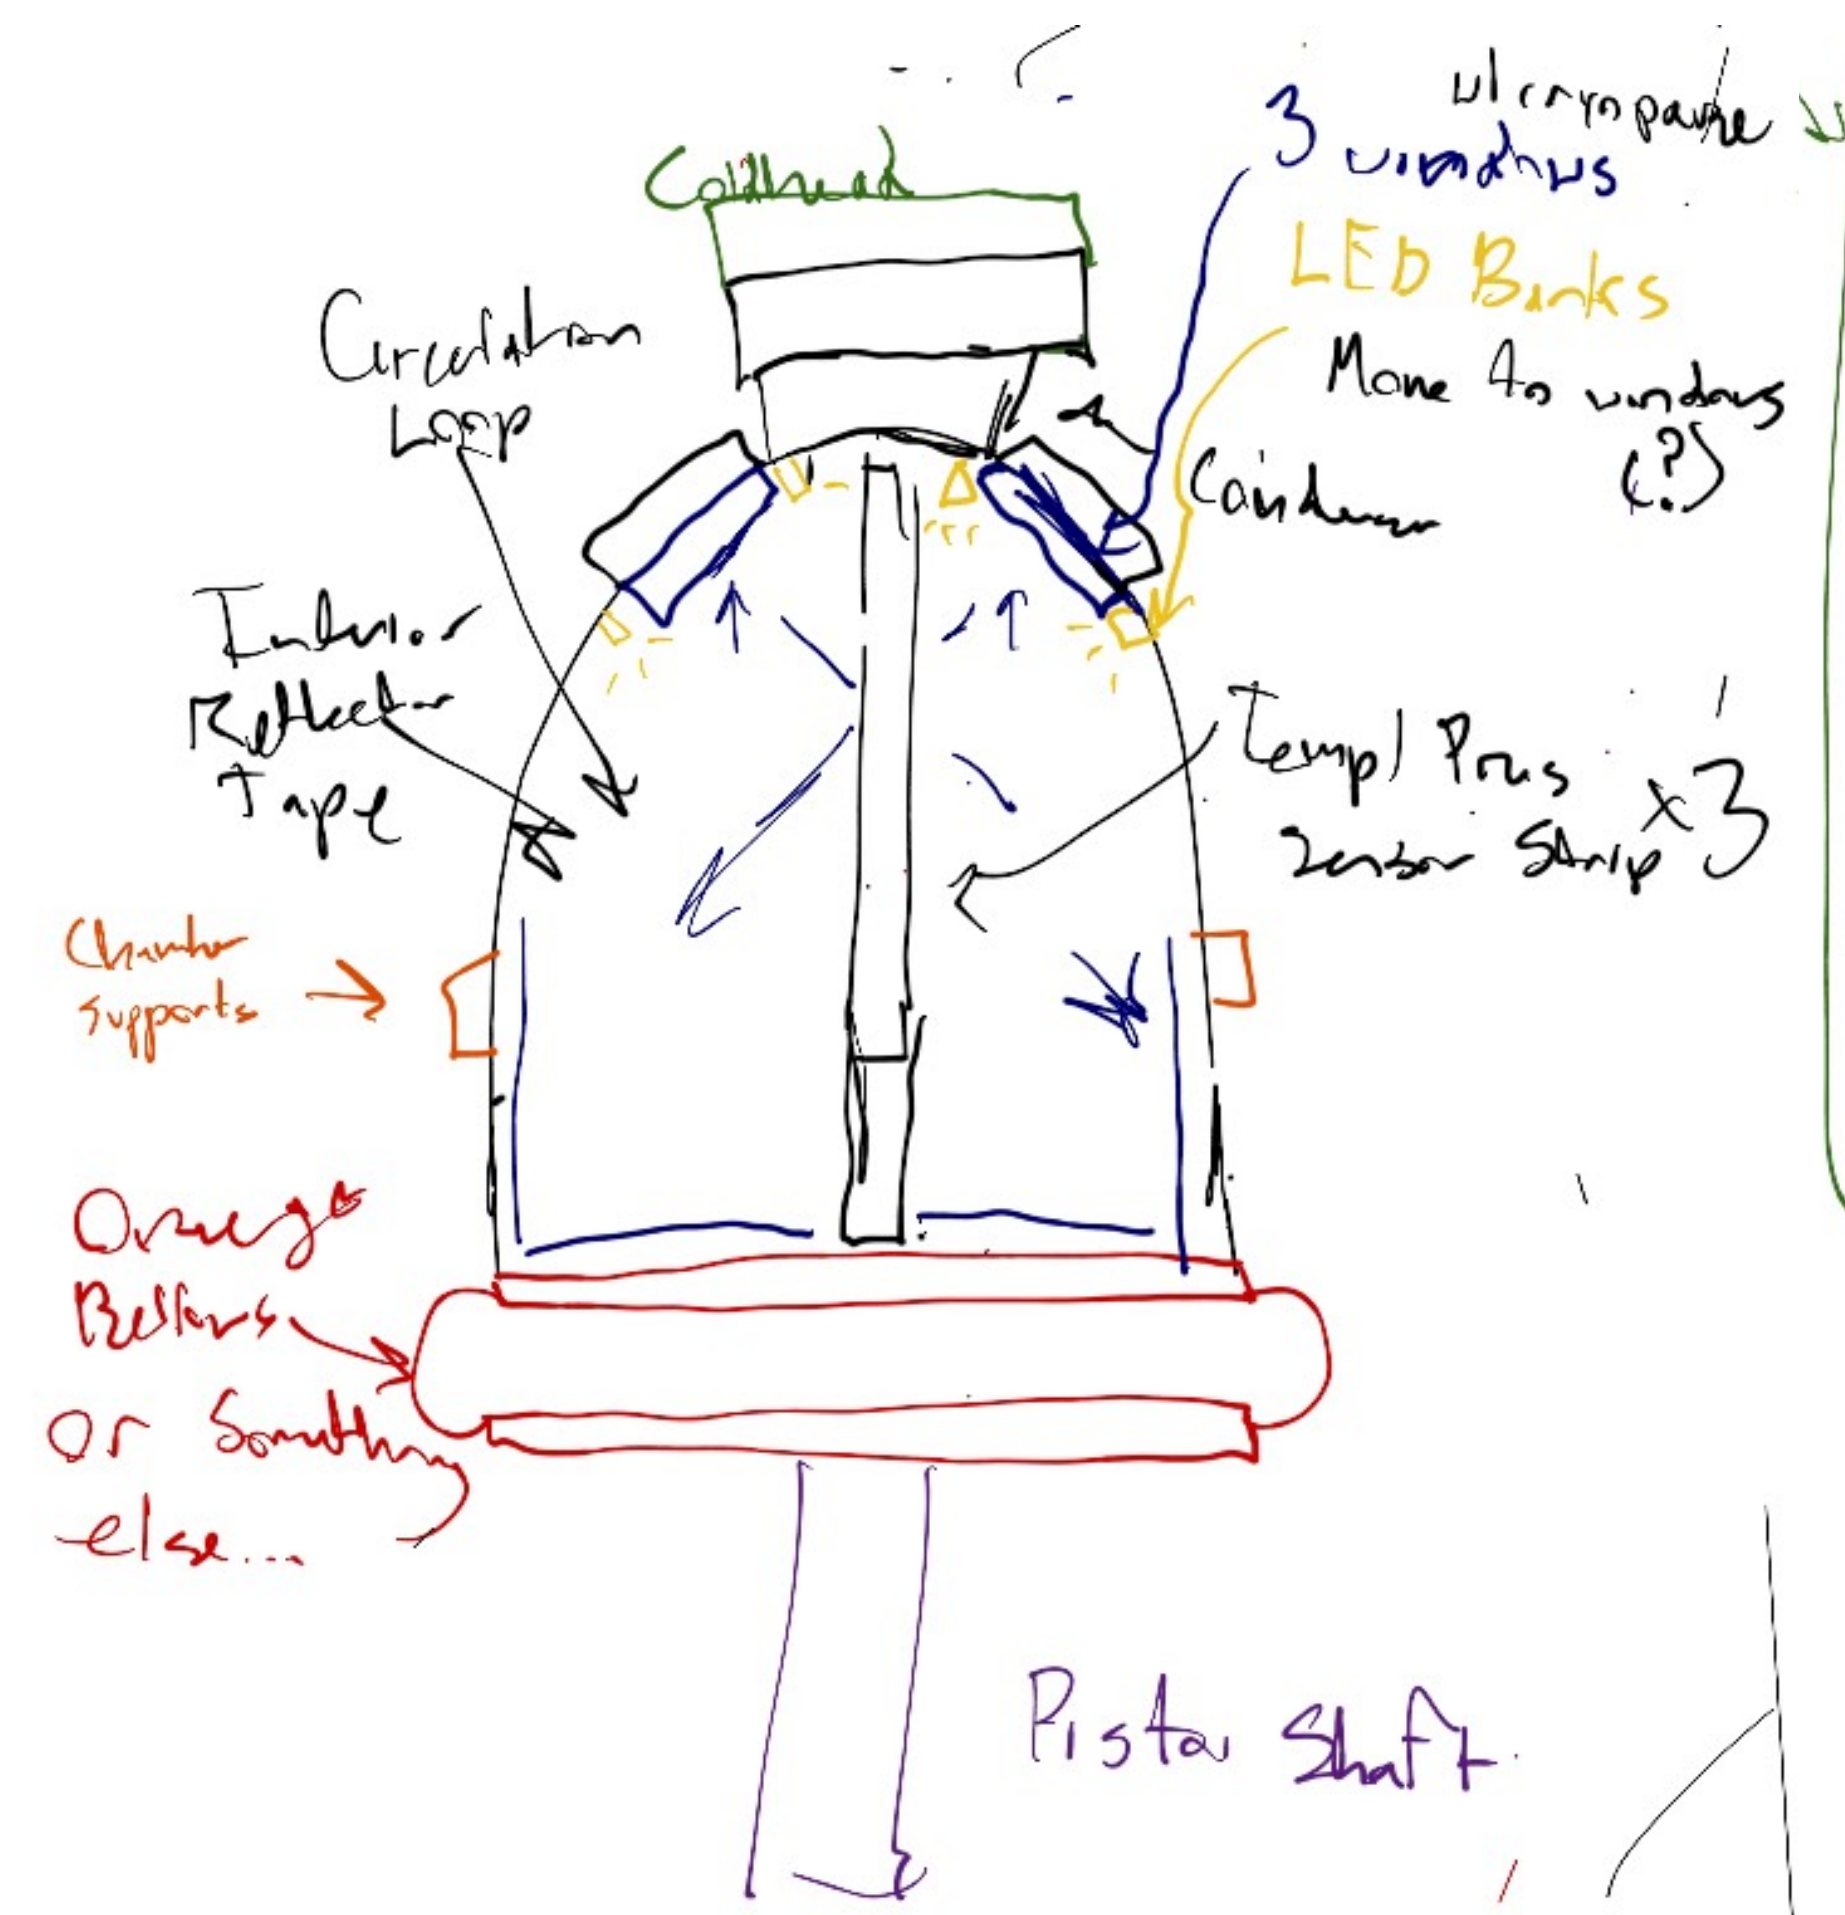 Coldhead
3 windows
LED Banks
Move to windows
(?)
Circulation
Loop
Interior
Reflector
Tape
Temp/ Pres
Sensor Strip x3
Chamber
supports
Orange
Bellows
or Something
else...
Piston Shaft